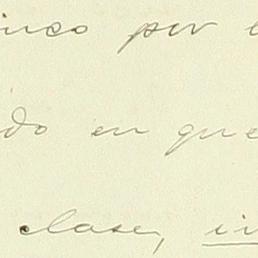 inco por
do en que
clase, in